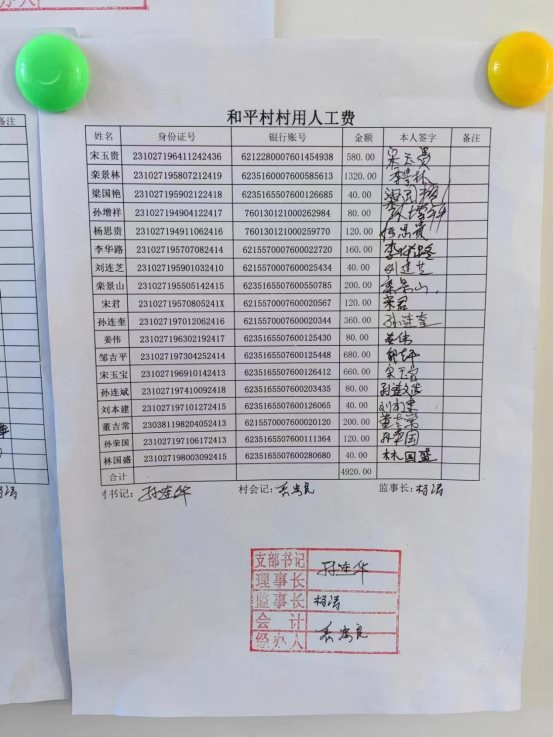 备注
和平村村用人工费
姓名 身份证号 银行账号 金额 本人签字 备注
宋玉贵 231027196411242436 6212280007601454938 580.00 宋玉贵
栾景林 231027195807212419 6235160007600585613 1320.00 栾景林
梁国艳 231027195902122418 6235165507600126685 40.00 梁国艳
孙增祥 231027194904122417 760130121000262984 80.00 孙增祥
杨思贵 231027194911062416 760130121000259770 120.00 杨思贵
李华路 231027195707082414 6215570007600022720 160.00 李华路
刘连芝 231027195901032410 6215570007600025434 40.00 刘连芝
栾景山 231027195505142415 6235165507600550785 200.00 栾景山
宋君 23102719570805241X 6215570007600020567 120.00 宋君
孙连奎 231027197012062416 6215570007600020344 360.00 孙连奎
姜伟 231027196302192417 6235165507600125430 80.00 姜伟
邹吉平 231027197304252414 6235165507600125448 680.00 邹吉平
宋玉宝 231027196910142413 6235165507600126412 660.00 宋玉宝
孙连斌 231027197410092418 6235165507600203435 80.00 孙连斌
刘本建 231027197101272415 6235165507600126065 40.00
董吉常 230381198204052413 6215570007600020120 200.00 董吉常
孙荣国 231027197106172413 6235165507600111364 120.00 孙荣国
林国盛 231027198003092415 6235165507600280680 40.00 林国盛
合计 4920.00
书记: 孙连华 村会记: 监事长: 杨涛
支部书记 孙连华
理事长
监事长 杨涛
会计
经办人